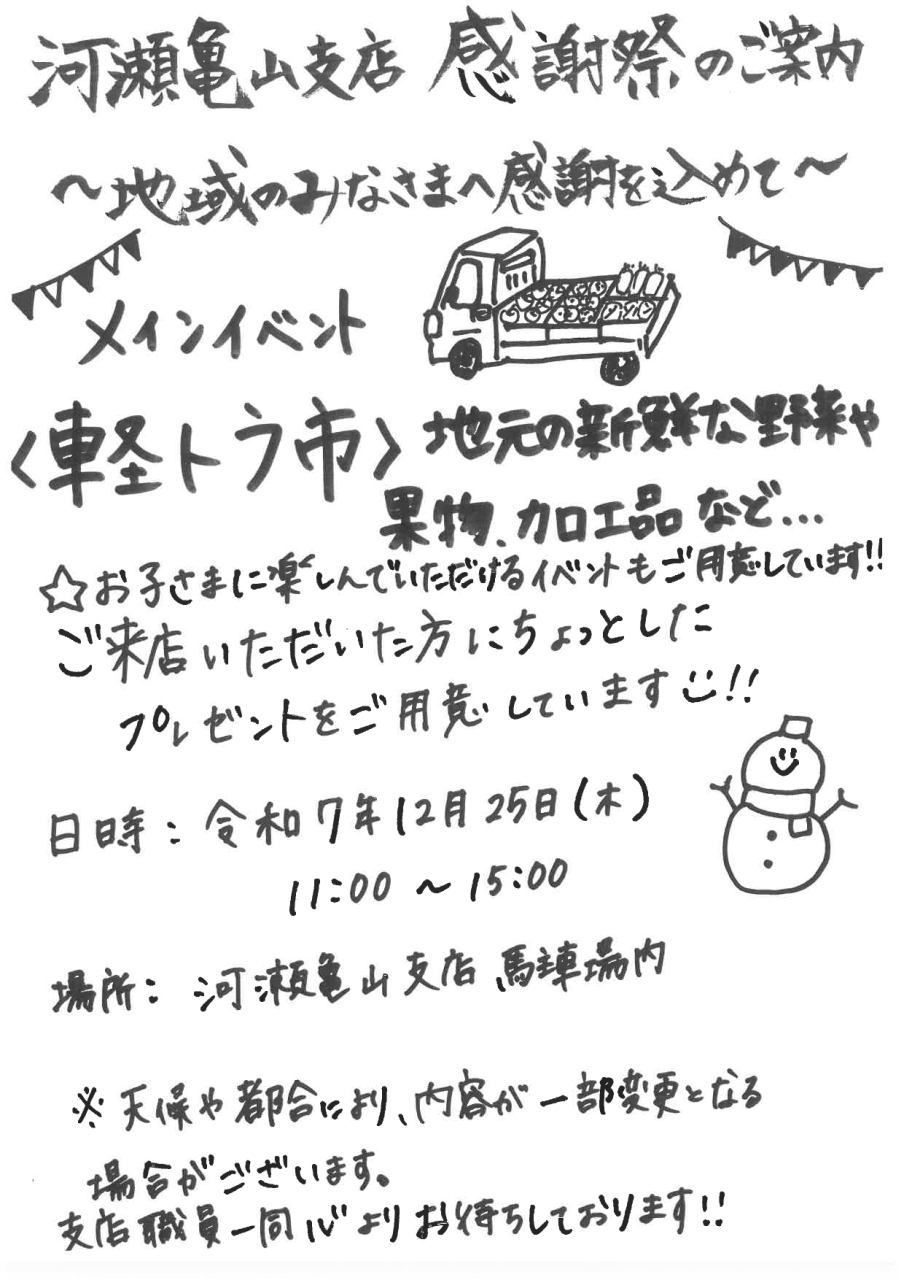 河瀬亀山支店 感謝祭のご案内
～地域のみなさまへ感謝を込めて～
メインイベント
〈軽トラ市〉 地元の新鮮な野菜や
果物、加工品など…
☆お子さまに楽しんでいただけるイベントもご用意しています!!
ご来店いただいた方にちょっとした
プレゼントをご用意しています!!
日時：令和7年12月25日(木)
11:00 ～ 15:00
場所：河瀬亀山支店 駐車場内
※ 天候や都合により、内容が一部変更となる
場合がございます。
支店職員一同心よりお待ちしております!!